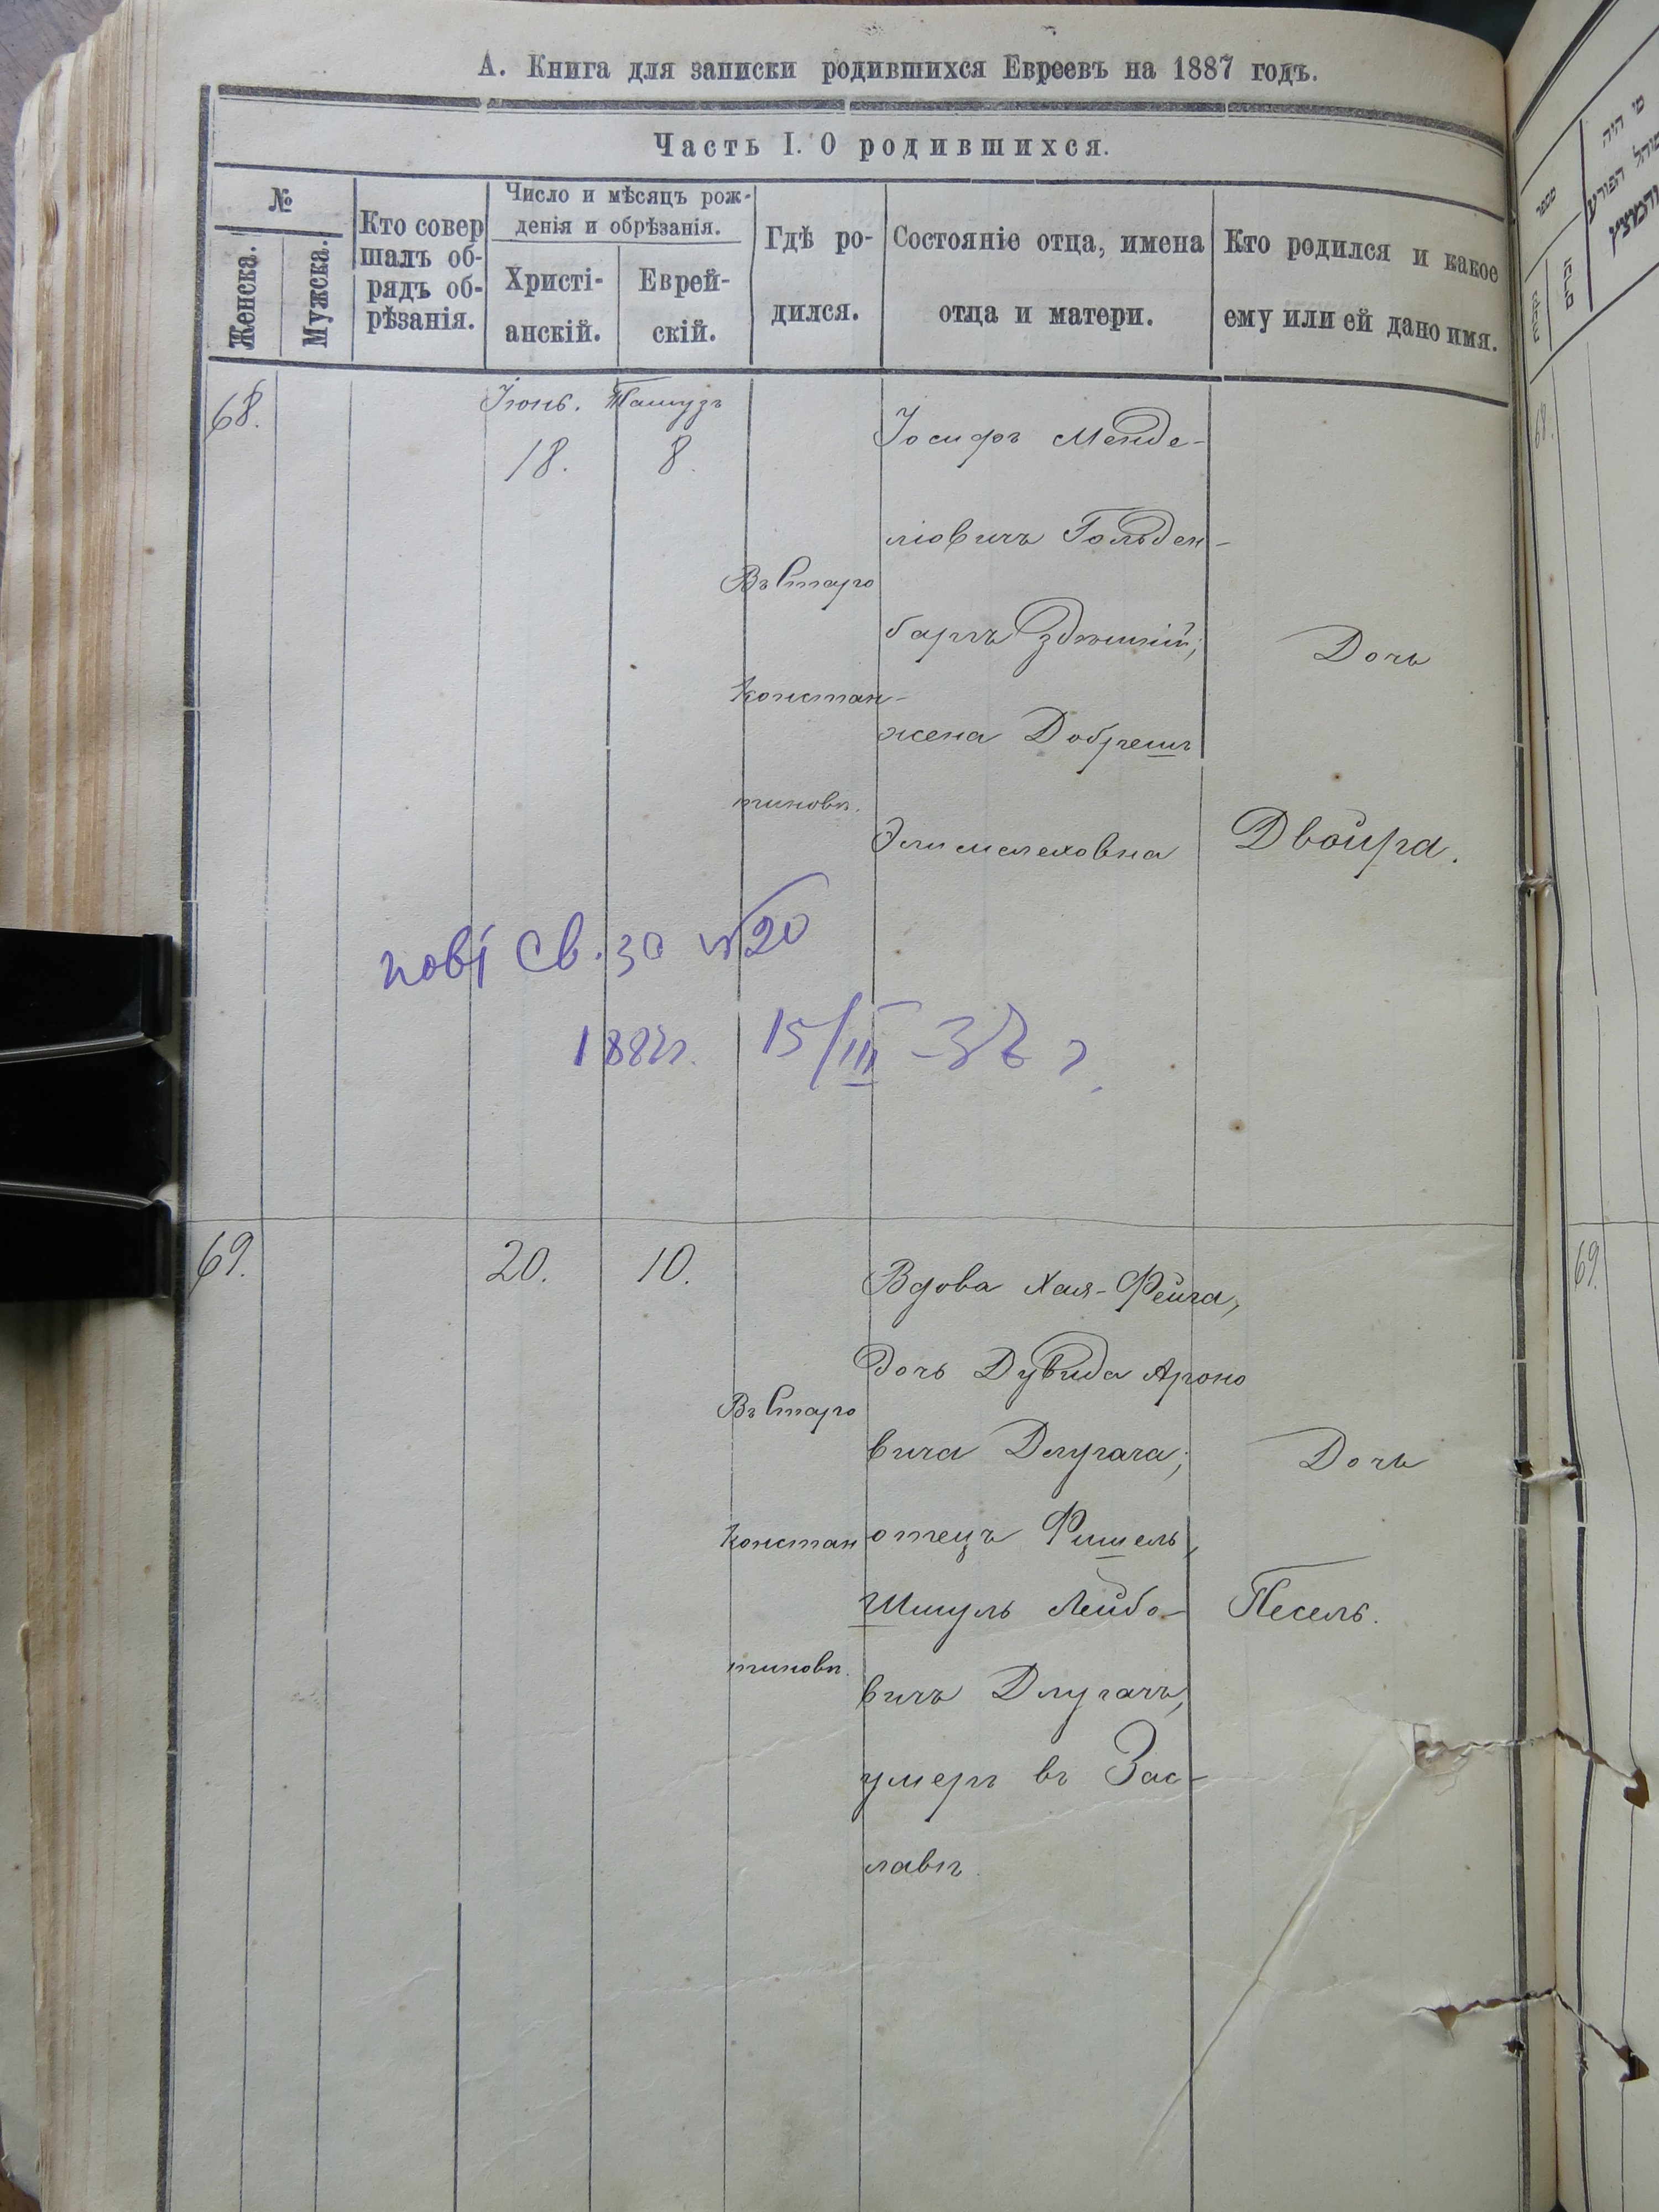 А. Книга для записки родившихся Евреевъ на 1887 годъ.
Часть I. О родившихся.
№
Женска.
Мужска.
Кто совер
шалъ об-
рядъ об-
рѣзанія.
Число и мѣсяцъ рож-
денія и обрѣзанія.
Христі-
анскій.
Еврей-
скій.
Гдѣ ро-
дился.
Состояніе отца, имена
отца и матери.
Кто родился и какое
ему или ей дано имя.
68.
Іюнь.
18.
Тамузъ
8.
Въ Старо
констан-
тиновѣ.
Іосифъ Менде-
ліовичъ Гольден-
баргъ здѣшній;
жена Добрешъ
Элимелеховна
Дочь
Двойра.
нові св. за №20
15/III-37 г.
69.
20.
10.
Въ Старо
констан
тиновѣ.
Вдова Хая-Фейга,
дочь Дувида Ароно
вича Длугача;
отецъ Фишель,
Шмуль Лейбо-
вичъ Длугачъ,
умеръ въ Зас-
лавѣ
Дочь
Песель.
68.
69.
מי היה
מספר